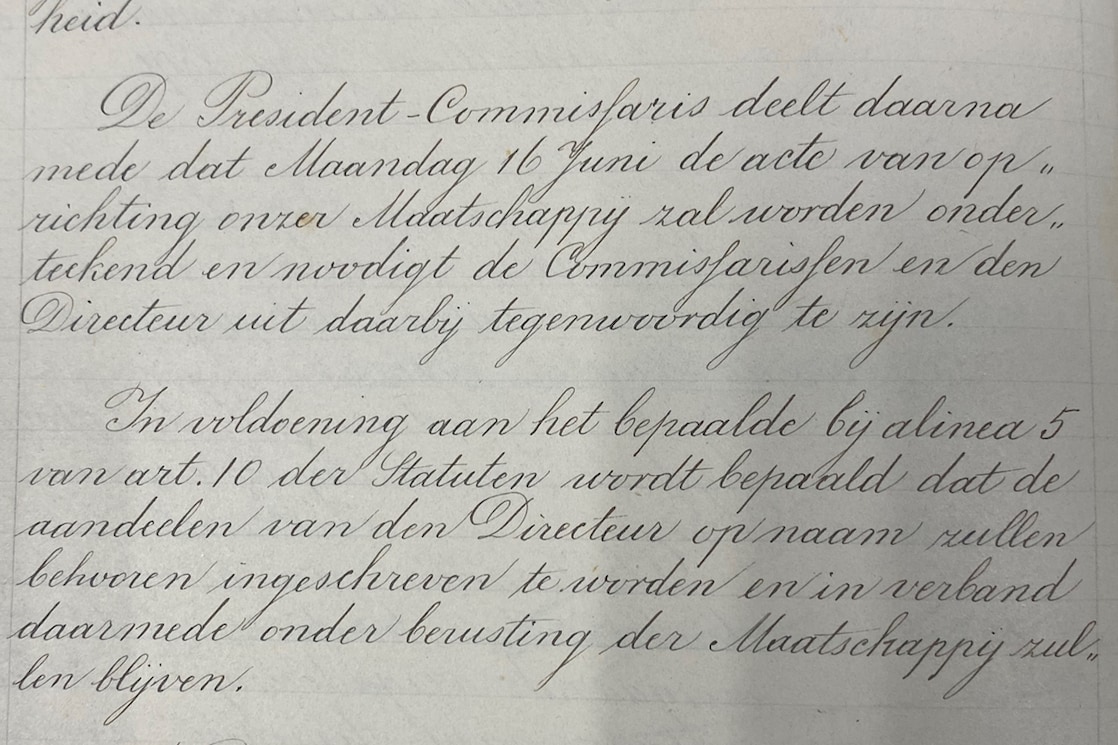 heid.
De President-Commissaris deelt daarna
mede dat Maandag 16 Juni de acte van op„
richting onzer Maatschappij zal worden onder„
teekend en noodigt de Commissarissen en den
Directeur uit daarbij tegenwoordig te zijn.
In voldoening aan het bepaalde bij alinea 5
van art. 10 der Statuten wordt bepaald dat de
aandeelen van den Directeur op naam zullen
behooren ingeschreven te worden en in verband
daarmede onder berusting der Maatschappij zul„
len blijven.